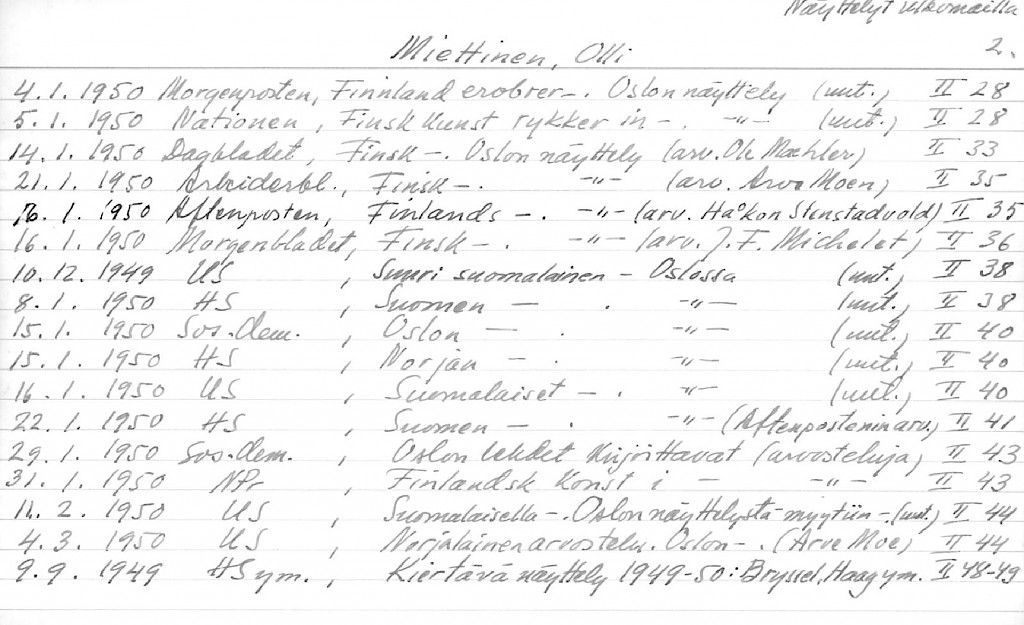 Näyttelyt ulkomailla
Miettinen, Olli 2.
4.1. 1950 Morgenposten, Finnland erobrer-. Oslon näyttely (uut.) II 28
5.1. 1950 Nationen, Finsk Kunst rykker in -. -"- (uut.) II 28
14.1. 1950 Dagbladet, Finsk -. Oslon näyttely (arv. Ole Mæhler) II 33
21.1. 1950 Arbeiderbl., Finsk -. -"- (arv. Arve Moen) II 35
16.1. 1950 Aftenposten, Finlands -. -"- (arv. Håkon Stenstadvold) II 35
16.1. 1950 Morgenbladet, Finsk -. -"- (arv. J. F. Michelet) II 36
10.12. 1949 US, Suuri suomalainen - Oslossa (uut.) II 38
8.1. 1950 HS, Suomen -. -"- (uut.) II 38
15.1. 1950 Sos.dem., Oslon -. -"- (uut.) II 40
15.1. 1950 HS, Norjan -. -"- (uut.) II 40
16.1. 1950 US, Suomalaiset -. -"- (uut.) II 40
22.1. 1950 HS, Suomen -. -"- (Aftenposteninarv.) II 41
29.1. 1950 Sos.dem., Oslon lehdet kirjoittavat (arvosteluja) II 43
31.1. 1950 NPr, Finlandsk Konst i - -"- II 43
11.2. 1950 US, Suomalaisella -. Oslon näyttelystä myytiin - (uut.) II 44
4.3. 1950 US, Norjalainen arvostelu. Oslon -. (Arve Moe) II 44
9.9. 1949 HS ym., Kiertävä näyttely 1949-50: Bryssel, Haag ym. II 48-49